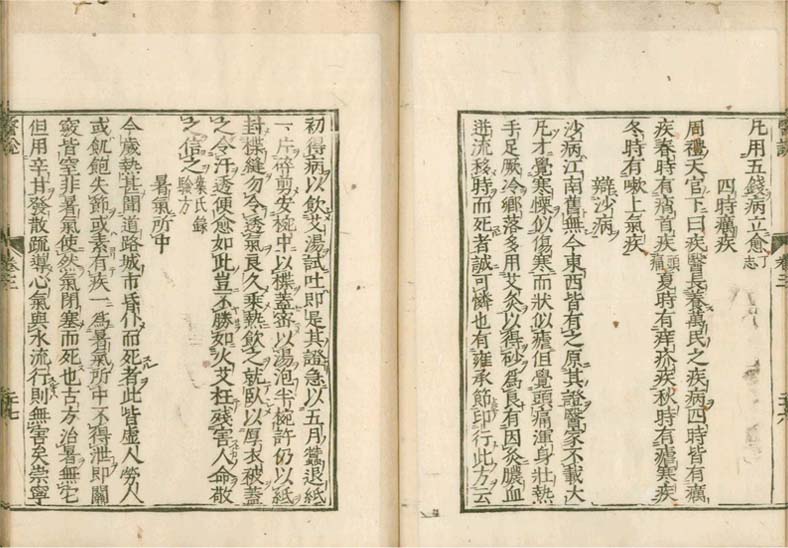 凡用五錢病立愈丁志
四時癘疾
周禮天官下曰疾醫長養萬民之疾病四時皆有癘
疾春時有痟首疾頭痛夏時有痒疥疾秋時有瘧寒疾
冬時有嗽上氣疾
辯沙病
沙病江南舊無今東西皆有之原其證醫家不載大
凡才覺寒慄似傷寒而狀似瘧但覺頭痛渾身壯熱
手足厥冷鄉落多用艾灸以得砂爲良有因灸膿血
迸流移時而死者誠可憐也有雍承節印行此方云
醫說
卷二
二十六
初得病以飲艾湯試吐即是其證急以五月蠶退紙
一片碎剪安椀中以楪蓋密以湯泡半椀許仍以紙
封楪縫勿令透氣良久乘熱飲之就臥以厚衣被蓋
之令汗透便愈如此豈不勝如火艾枉殘害人命敬
之信之葉氏錄驗方
暑氣所中
今歲熱甚聞道路城市昏仆而死者此皆虛人勞人
或飢飽失節或素有疾一爲暑氣所中不得泄即關
竅皆窒非暑氣使然氣閉塞而死也古方治暑無它
但用辛甘發散疏導心氣與水流行則無害矣崇寧
醫說
卷二
二十七